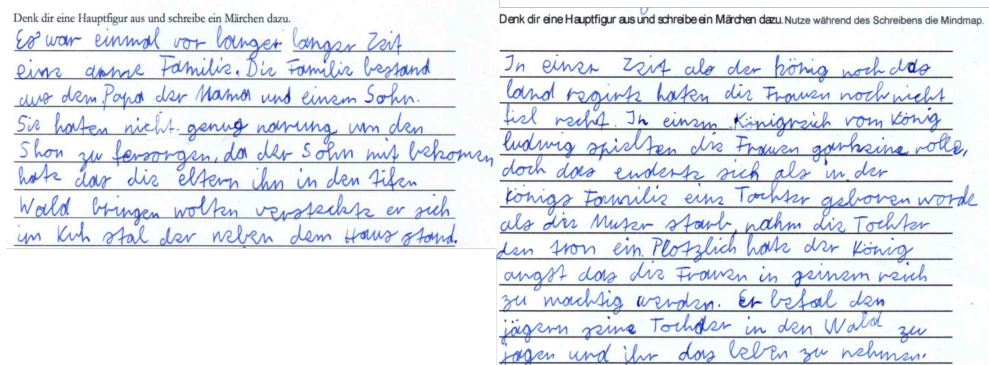 Denk dir eine Hauptfigur aus und schreibe ein Märchen dazu.
Es war einmal vor langer langer Zeit
eine arme Familie. Die Familie bestand
aus dem Papa der Mama und einem Sohn.
Sie haten nicht genug narung um den
Shon zu fersorgen, da der Sohn mit bekomen
hate das die eltern ihn in den tifen
Wald bringen wolten versteckte er sich
im Kuh stal der neben dem Haus stand.
Denk dir eine Hauptfigur aus und schreibe ein Märchen dazu. Nutze während des Schreibens die Mindmap.
In einer Zeit als der könig noch das
land regirte haten die Frauen noch nicht
fiel recht. In einem Königreich vom König
ludwig spielten die Frauen garkeine rolle,
doch das enderte sich als in der
königs Familie eine Tochter geboren worde
als die Muter starb, nahm die Tochter
den tron ein. Plotzlich hate der König
angst das die Frauen in seinem reich
zu machtig werden. Er befal den
jägern seine Tochder in den Wald zu
jagen und ihr das leben zu nehmen.